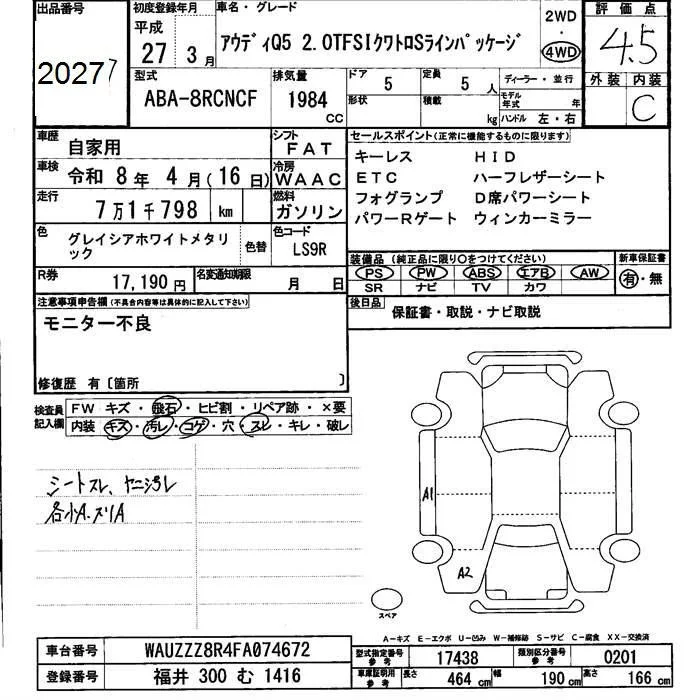 出品番号
20277
初度登録年月
平成
27 3月
車名・グレード
アウディQ5 2.0TFSIクワトロSラインパッケージ
2WD
・
4WD
評価点
4.5
外装 内装
C
型式
ABA-8RCNCF
排気量
1984
CC
ドア 5
定員 5人
形状
積載 kg
ディーラー・並行
モデル年式 年
ハンドル 左・右
車歴
自家用
シフト
FAT
車検
令和 8年 4月(16日)
冷房
WAAC
走行
7万1千798 km
燃料
ガソリン
色
グレイシアホワイトメタリック
色替
色コード
LS9R
R券
17,190円
名変通知期限
月 日
セールスポイント(正常に機能するものに限ります)
キーレス HID
ETC ハーフレザーシート
フォグランプ D席パワーシート
パワーRゲート ウィンカーミラー
装備品(純正品に限り○をつけてください)
新車保証書
PS PW ABS エアB AW
SR ナビ TV カワ
有・無
後日品
保証書・取説・ナビ取説
注意事項申告欄(不具合内容等は具体的に記入して下さい)
モニター不良
修復歴 有〔箇所 〕
検査員記入欄
FW キズ・飛石・ヒビ割・リペア跡・×要
内装 キズ・汚レ・コゲ・穴・スレ・キレ・破レ
シートスレ、ヤニ汚レ
各小A.スリA
A1
A2
スペア
A-キズ E-エクボ U-凹み W-補修跡 S-サビ C-腐食 XX-交換済
車台番号
WAUZZZ8R4FA074672
登録番号
福井 300 む 1416
型式指定番号
参考
17438
類別区分番号
参考
0201
車庫証明用
参考
長さ 464 cm
幅 190 cm
高さ 166 cm